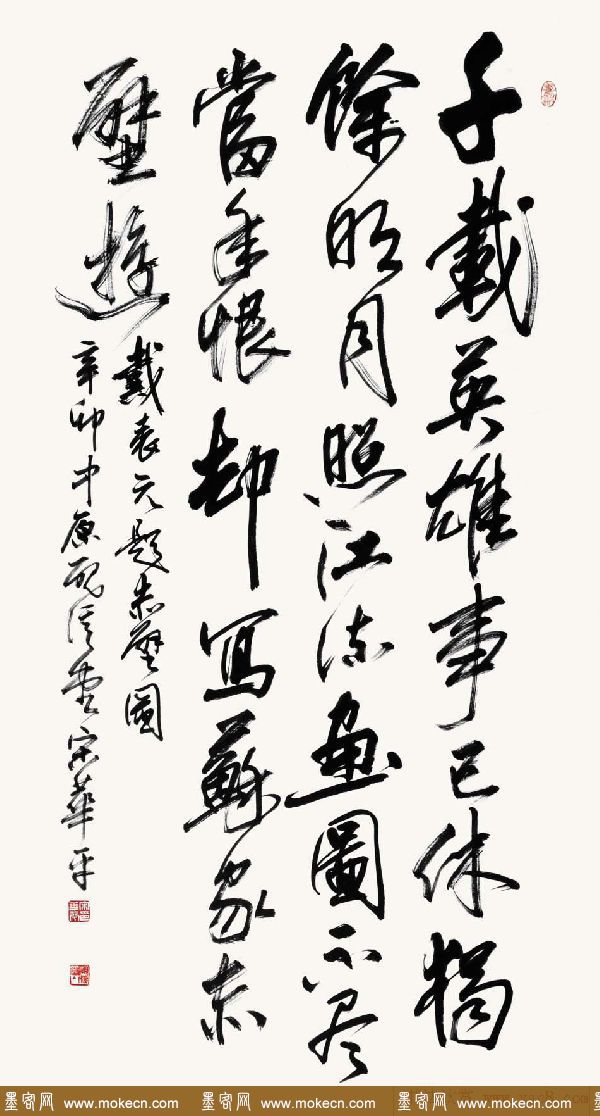 千載英雄事已休獨
餘明月照江流畫圖不盡
當年恨却寫蘇家赤
壁遊
戴表元題赤壁圖
辛卯中原宋華平
墨客网 www.mokecn.com 墨客网 www.mokecn.com 墨客网 www.mokecn.com